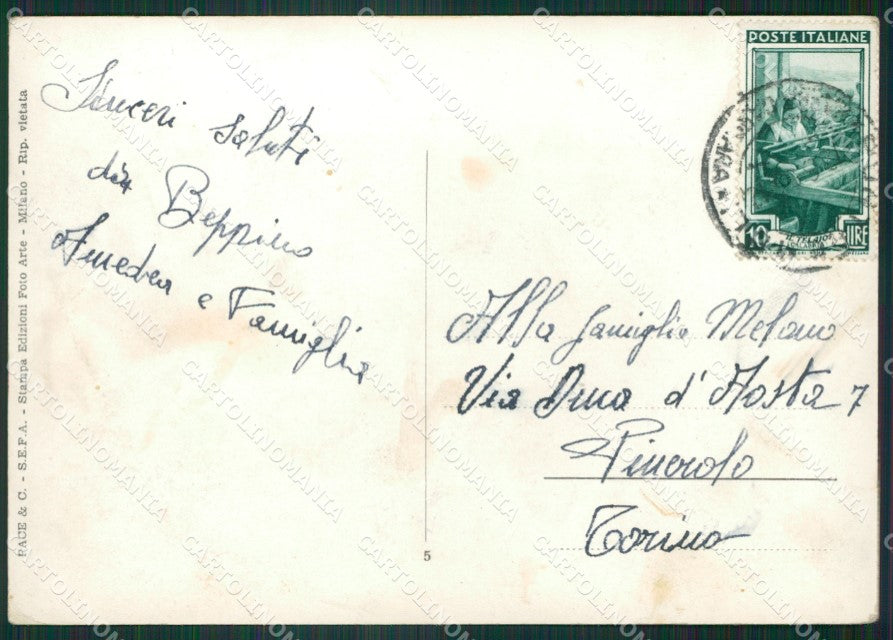 Sinceri saluti
da Beppino
Amedea e Famiglia
POSTE ITALIANE
10 LIRE
IL TELAIO
Alla famiglia Melano
Via Duca d'Aosta 7
Pinerolo
Torino
PACE & C. - S.E.F.A. - Stampa Edizioni Foto Arte - Milano - Rip. vietata
5
CARTOLINOMANIA